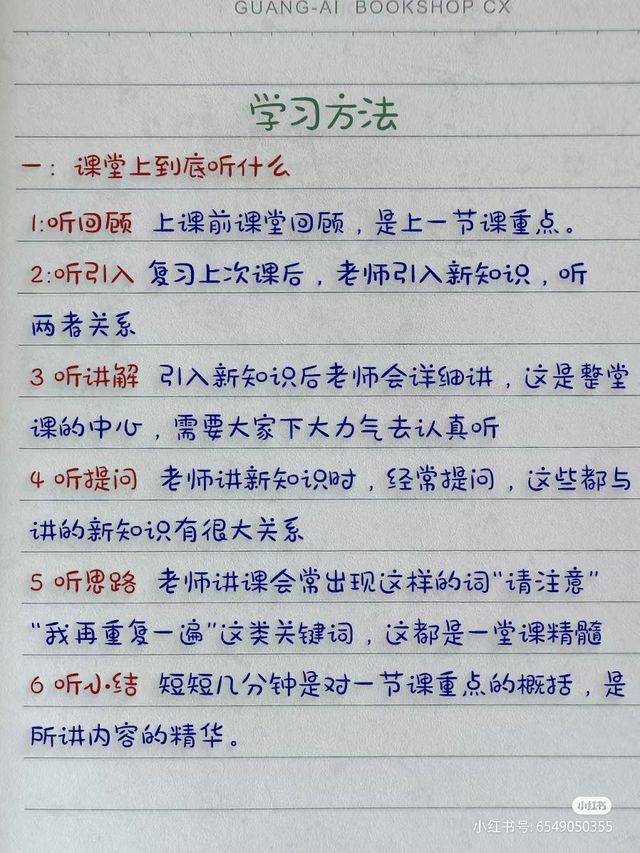 GUANG-AI BOOKSHOP CX
学习方法
一：课堂上到底听什么
1:听回顾 上课前课堂回顾，是上一节课重点。
2:听引入 复习上次课后，老师引入新知识，听
两者关系
3 听讲解 引入新知识后老师会详细讲，这是整堂
课的中心，需要大家下大力气去认真听
4 听提问 老师讲新知识时，经常提问，这些都与
讲的新知识有很大关系
5 听思路 老师讲课会常出现这样的词“请注意”
“我再重复一遍”这类关键词，这都是一堂课精髓
6 听小结 短短几分钟是对一节课重点的概括，是
所讲内容的精华。
小红书
小红书号: 6549050355